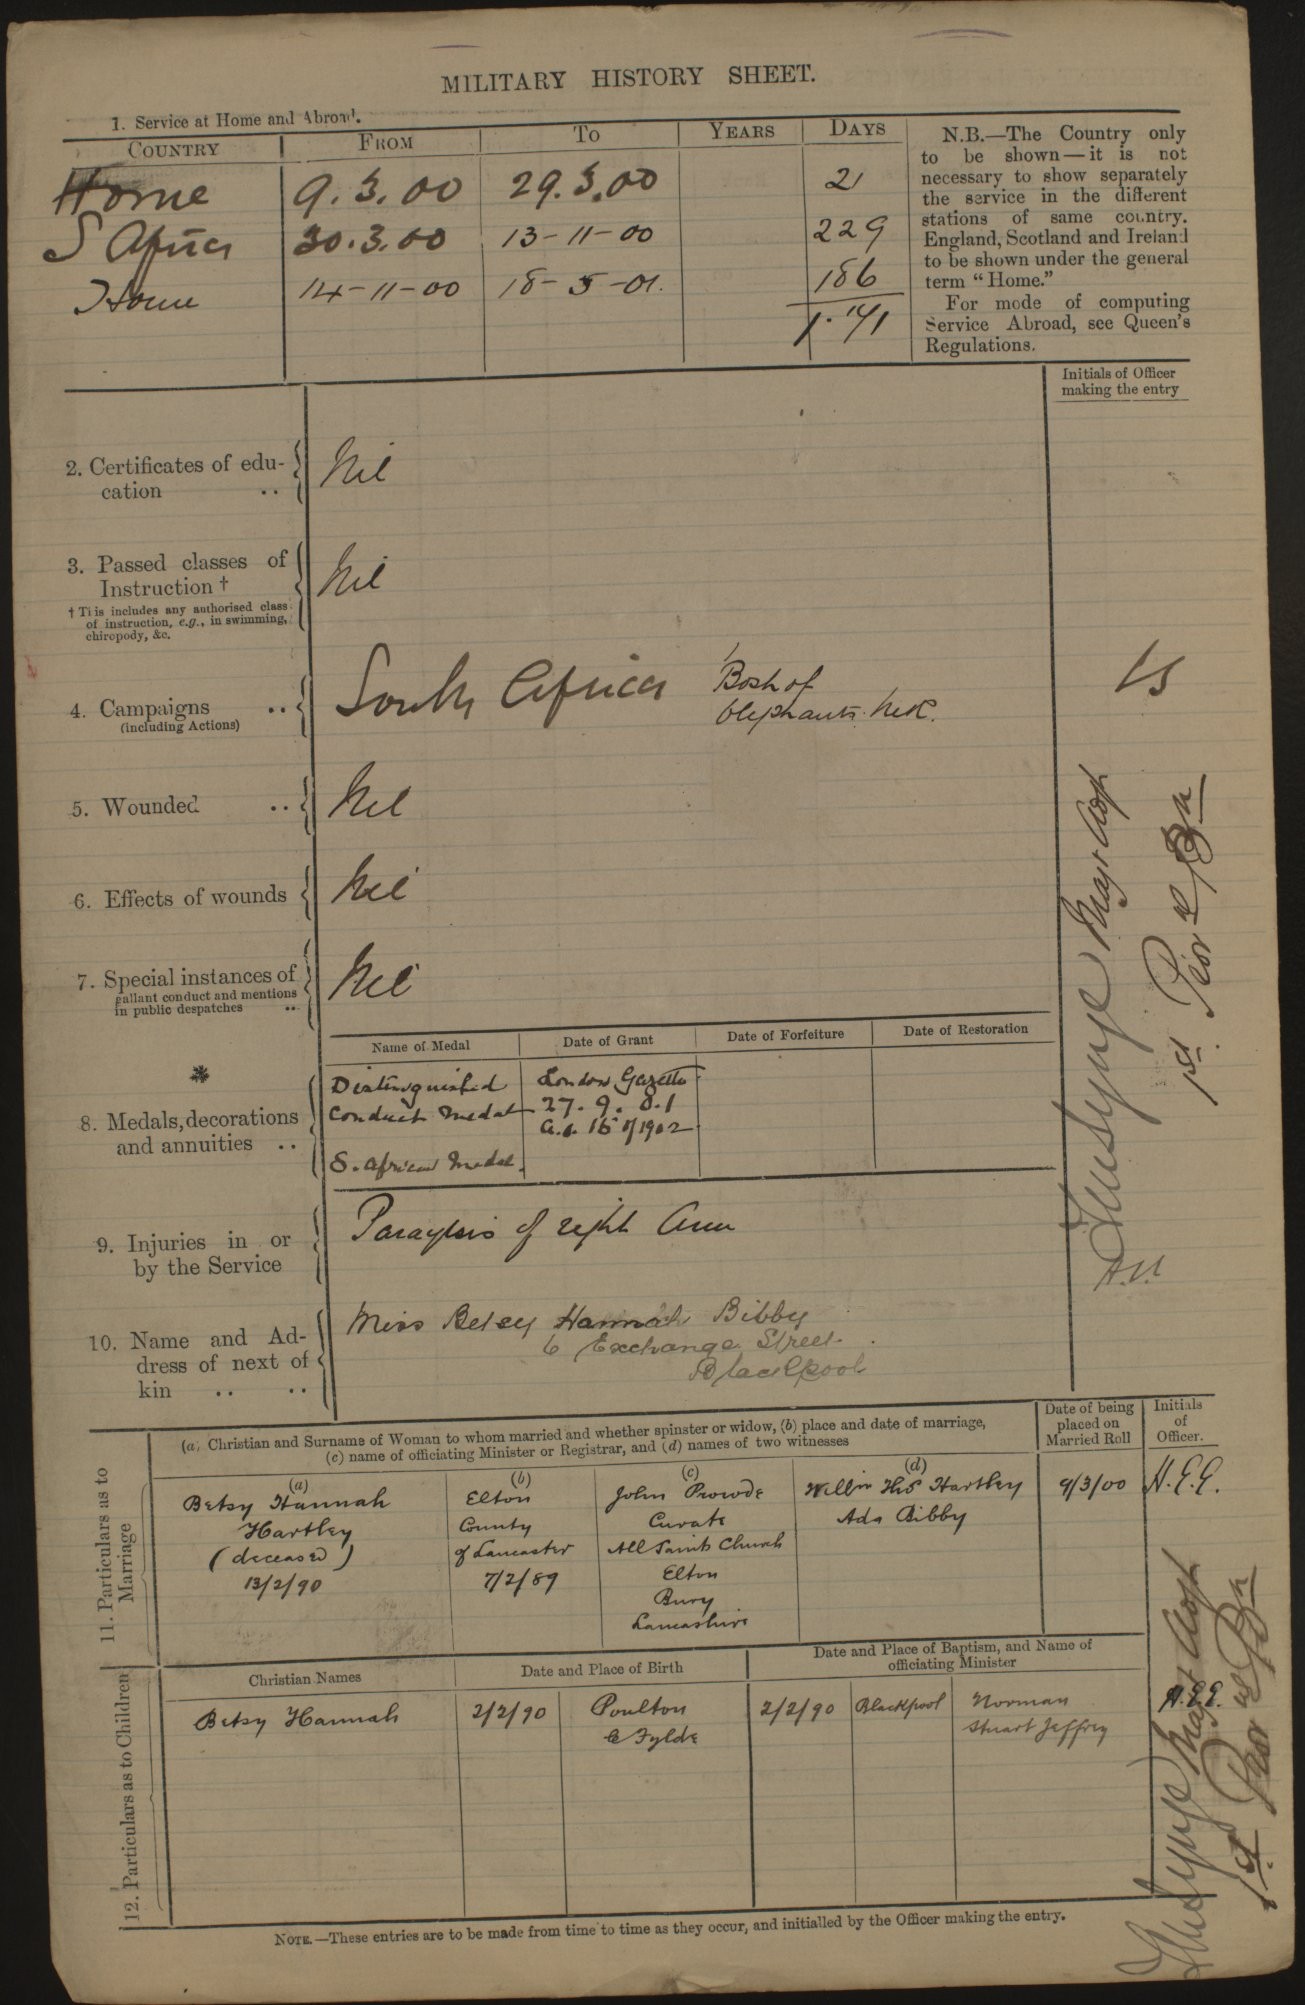 MILITARY HISTORY SHEET.
1. Service at Home and Abroad.
COUNTRY FROM TO YEARS DAYS
Home 9.3.00 29.3.00 21
S Africa 30.3.00 13-11-00 229
Home 14-11-00 18-5-01. 186
1.71
N.B.—The Country only
to be shown—it is not
necessary to show separately
the service in the different
stations of same country.
England, Scotland and Ireland
to be shown under the general
term "Home."
For mode of computing
Service Abroad, see Queen's
Regulations.
Initials of Officer
making the entry
2. Certificates of edu-
cation ..
Nil
3. Passed classes of
Instruction †
† This includes any authorised class
of instruction, e.g., in swimming,
chiropody, &c.
Nil
4. Campaigns ..
(including Actions)
South Africa Boshof
Olephants Nek.
5. Wounded ..
Nil
6. Effects of wounds
Nil
7. Special instances of
gallant conduct and mentions
in public despatches ..
Nil
Name of Medal Date of Grant Date of Forfeiture Date of Restoration
*
8. Medals, decorations
and annuities ..
Distinguished London Gazette
Conduct Medal 27.9.01
a.o. 15 1/1902
S. African Medal.
9. Injuries in or
by the Service
Paraylsis of right Arm
10. Name and Ad-
dress of next of
kin .. ..
Miss Betsy Hannah Bibby
6 Exchange Street
Blackpool
Major
1st
11. Particulars as to
Marriage
(a) Christian and Surname of Woman to whom married and whether spinster or widow, (b) place and date of marriage,
(c) name of officiating Minister or Registrar, and (d) names of two witnesses
Date of being
placed on
Married Roll
Initials
of
Officer.
(a) (b) (c) (d)
Betsy Hannah Elton John Prowde Hartley 9/3/00 H.E.E.
Hartley County Curate Ada Bibby
(deceased) of Lancaster All Saints Church
13/2/90 7/2/89 Elton
Bury
Lancashire
12. Particulars as to Children
Christian Names Date and Place of Birth Date and Place of Baptism, and Name of
officiating Minister
Betsy Hannah 2/2/90 Poulton 2/2/90 Blackpool Norman H.E.E.
le Fylde Stuart Jeffrey
1st
NOTE.—These entries are to be made from time to time as they occur, and initialled by the Officer making the entry.